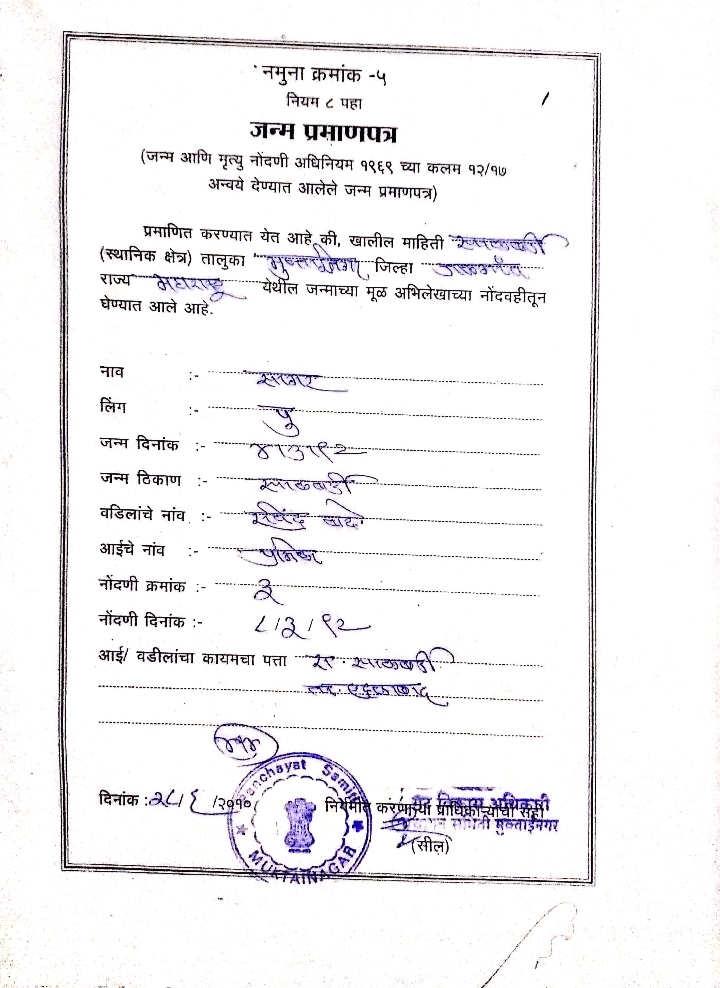 नमुना क्रमांक -५
नियम ८ पहा
जन्म प्रमाणपत्र
(जन्म आणि मृत्यु नोंदणी अधिनियम १९६९ च्या कलम १२/१७
अन्वये देण्यात आलेले जन्म प्रमाणपत्र)
प्रमाणित करण्यात येत आहे की, खालील माहिती सालबर्डी
(स्थानिक क्षेत्र) तालुका मुक्ताईनगर जिल्हा जळगांव
राज्य महाराष्ट्र येथील जन्माच्या मूळ अभिलेखाच्या नोंदवहीतून
घेण्यात आले आहे.
नाव :- सागर
लिंग :- पु
जन्म दिनांक :- ४।३।९२
जन्म ठिकाण :- सालबर्डी
वडिलांचे नांव :- रविंद्र
आईचे नांव :-
नोंदणी क्रमांक :- ३
नोंदणी दिनांक :- ८।३।९२
आई/ वडीलांचा कायमचा पत्ता रा. सालबर्डी
दिनांक : २८/६/२०१०
Panchayat Samiti
MUKTAINAGAR
नियमीत करणाऱ्या प्राधिकाऱ्यांची सही
गट विकास अधिकारी
पंचायत समिती मुक्ताईनगर
(सील)